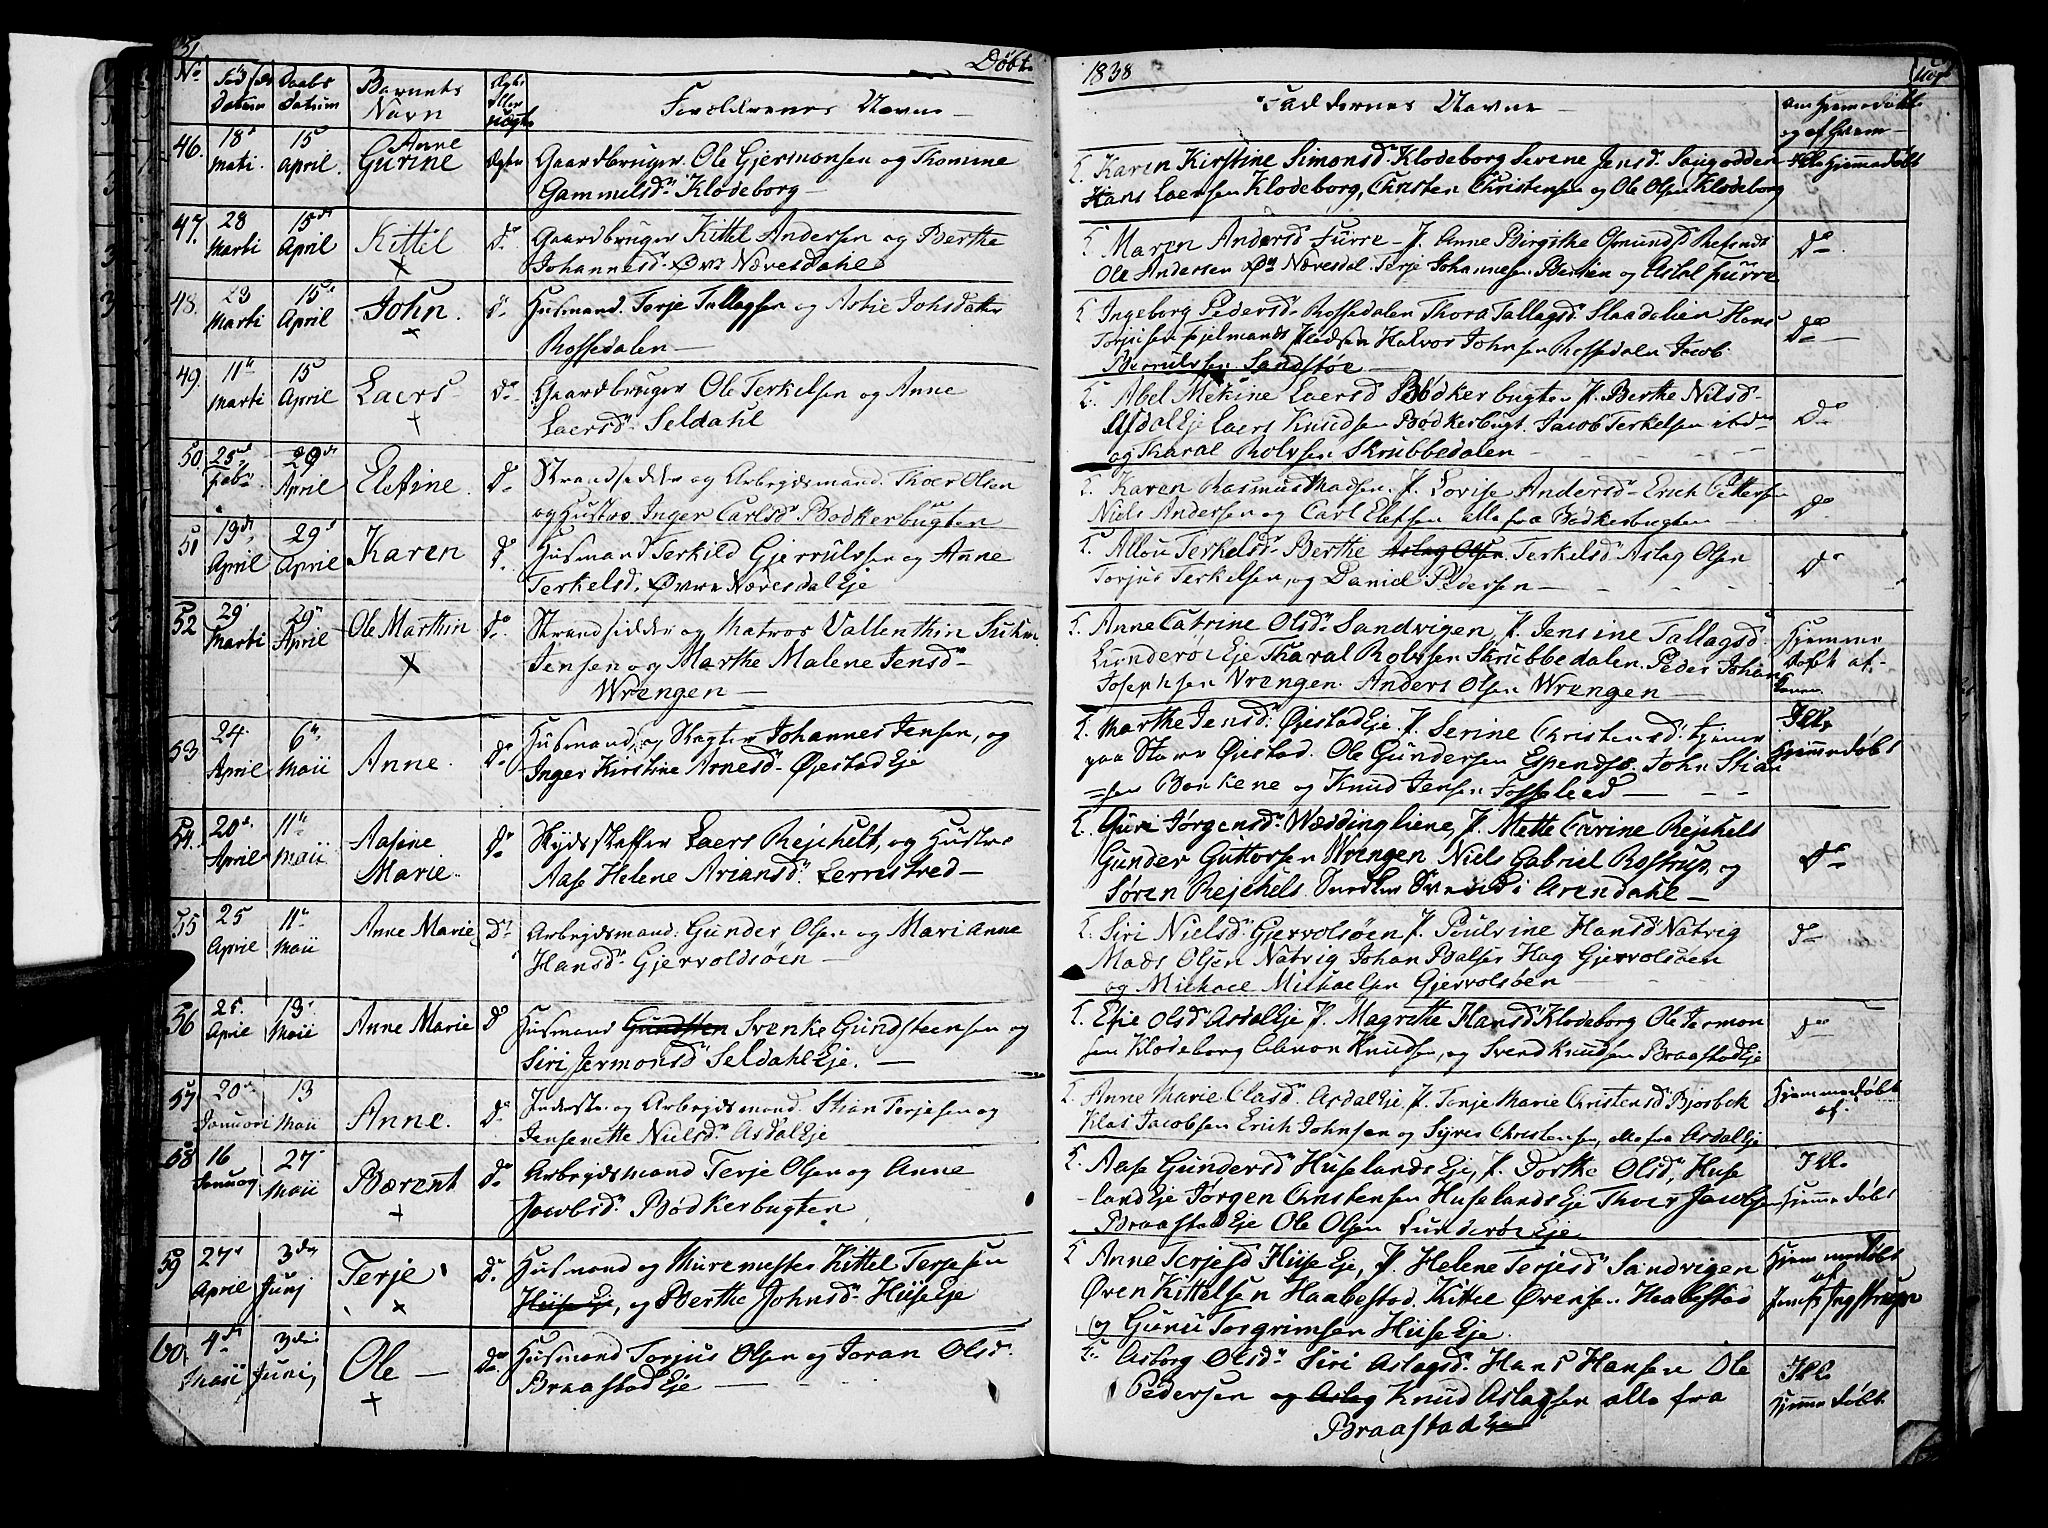 51
Døbt
1838
No
Datum
Daabs Datum
Barnets Navn
Forældrenes Navne
Faddernes Navne
om hjemmedøbt
og af hvem
46. 18 Marti. 15 April. Anne Gurine Ægte Gaardbruger Ole Gjermonsen og Thomine
Gammelsd. Klodeborg
Karen Kirstine Simonsd. Klodeborg Serene Jensd. Ikke Hjemmedøbt
Hans Laersen Klodeborg, Christen Christensen og Ole Olsen Klodeborg
47. 28 Marti 15 April Kittil Do Gaardbruger Kittel Andersen og Berthe
Johannesd. Øvre Næresdahl
Maren Andersd Furre F. Anne Birgithe Do
Ole Andersen Næresdal Terje Johannesen og Aslal Furre
48. 23 Marti 15 April John Do Husmand. Terje Tallagsen og Astie Johsdatter
Rossedalen
Ingeborg Pedersd. Rossedalen Thora Tallagsd. Hans
Torjusen Halvor Johnsen Rossedalen Jacob Do
Sandstøe
49. 11 Marti 15 April Laers Do Gaardbruger Ole Terkelsen og Anne
Laersd. Seldahl
Abel Laersd Bødkerbugten F. Berthe Nilsd.
Asdal Eje Laers Knudsen Bødkerbugt. Jacob Terkelsen Do
og Tharal Rolvsen Skrubbedalen
50. 25 Feb. 29 April Elefine Do Strandsidder og Arbeydsmand. Thoer Olsen
og Hustro Inger Carlsd. Bødkerbugten
Karen Rasmus Madsen. F. Lovise Andersd. Erich Pettersen
Niels Andersen og Carl Elefsen alle fra Bødkerbugten Do
51 19 April 29 April Karen Do Husmand Terkild Gjerrulvsen og Anne
Terkelsd. Øvre Næresdal Eje
Allou Terkelsd. Berthe Aslag Olsen Terkelsd. Aslag Olsen
Torjus Terkelsen, og Daniel Pedersen Do
52 29 Marti 29 April Ole Marthin Do Strandsidder og Matros Vallenthin
Jensen og Marthe Malene Jensd.
Wrengen
Anne Catrine Olsd. Sandvigen, F. Jensine Tallagsd. Hjemme
Lunderøe Eje Tharal Rolvsen Skrubbedalen. Peder Johan døbt af
Josephsen Vrengen. Anders Olsen Wrengen
53. 24 April 6 Maii Anne. Do Husmand, og Johannes Jensen, og
Inger Kirstine Arnesd. Øiestad Eje
Marthe Jensd: Øiestad Eje. F. Serine Christensd: tjener Ikke
paa Store Øiestad. Ole Gundersen Espendsø. John Stian Hjemmedøbt
sen Borkene og Knud Jensen Fosselied
54. 20 April 11 Maii Aasine Marie. Do Skydsskaffer Laers Rejchelt, og Hustro
Aase Helene Ariansd. Lerrestved
Guri Jørgensd. Wæddingliene, F. Mette Carine Rejchelt
Gunder Guttorsen Wrengen Niels Gabriel Rostrup og Do
Søren Rejchels. Svend i Arendahl
55 25 April 11 Maii Anne Marie Do Arbejdsmand: Gunder Olsen og Mari Anne
Hansd. Gjervoldsøen
Siri Nielsd. Gjervolsøen F. Poulvine Hansd Natvig
Mads Olsen Natvig Johan Balser Hag Gjervolsøen Do
og Michael Michaelsen Gjervolsøen
56 25. April 13. Maii Anne Marie Do Husmand Gundsten Svenke Gundsteensen og
Siri Jermonsd. Seldahl Eje.
Elie Olsd. Asdal Eje F. Magrethe Hansd. Klodeborg Ole Jermon
sen Klodeborg Knudsen, og Svend Knudsen Braastad Eje Do
57 20 Januari 13 Maii Anne. Do Inderste og Arbeydsmand. Stian Terjesen og
Jensenette Nielsd. Asdal Eje
Anne Marie Clasd. Asdal Eje, F. Terje Marie Christensd Bjosbek Hjemmedøbt
Klas Jacobsen Erich Johnsen og Syver Christensen, alle fra Asdal Eje af.
58 16 27 Maii Bærent Do Arbeydsmand Terje Olsen og Anne
Jacobsd. Bødkerbugten
Aase Gundersd Huselands Eje, F. Dorthe Olsd, Huse Ikke
land Eje Jørgen Christensen Huselands Eje Thoer Jacobsen Hjemmedøbt
Braastad Eje Ole Olsen Lunderøe Eje
59 27 April 3de Junj Terje Do Husmand og Muremester Kittel Terjesen
Huse Eje, og Berthe Johnsd. Huse Eje
Anne Terjesd Huse Eje, F. Helene Terjesd Sandvigen Hjemmedøbt
Øven Kittelsen Haabestad. Kittel Øvensen Haabestad af
og Gunu Torgrimsen Huse Eje.
60. 4 Maii 3de Juni, Ole Do Husmand Torjus Olsen og Joran Olsd.
Braastad Eje
Asborg Olsd. Siri Aslagsd. Hans Hansen Ole Ikke
Pedersen og Aslag Knud Aslagsen alle fra Hjemmedøbt
Braastad Eje